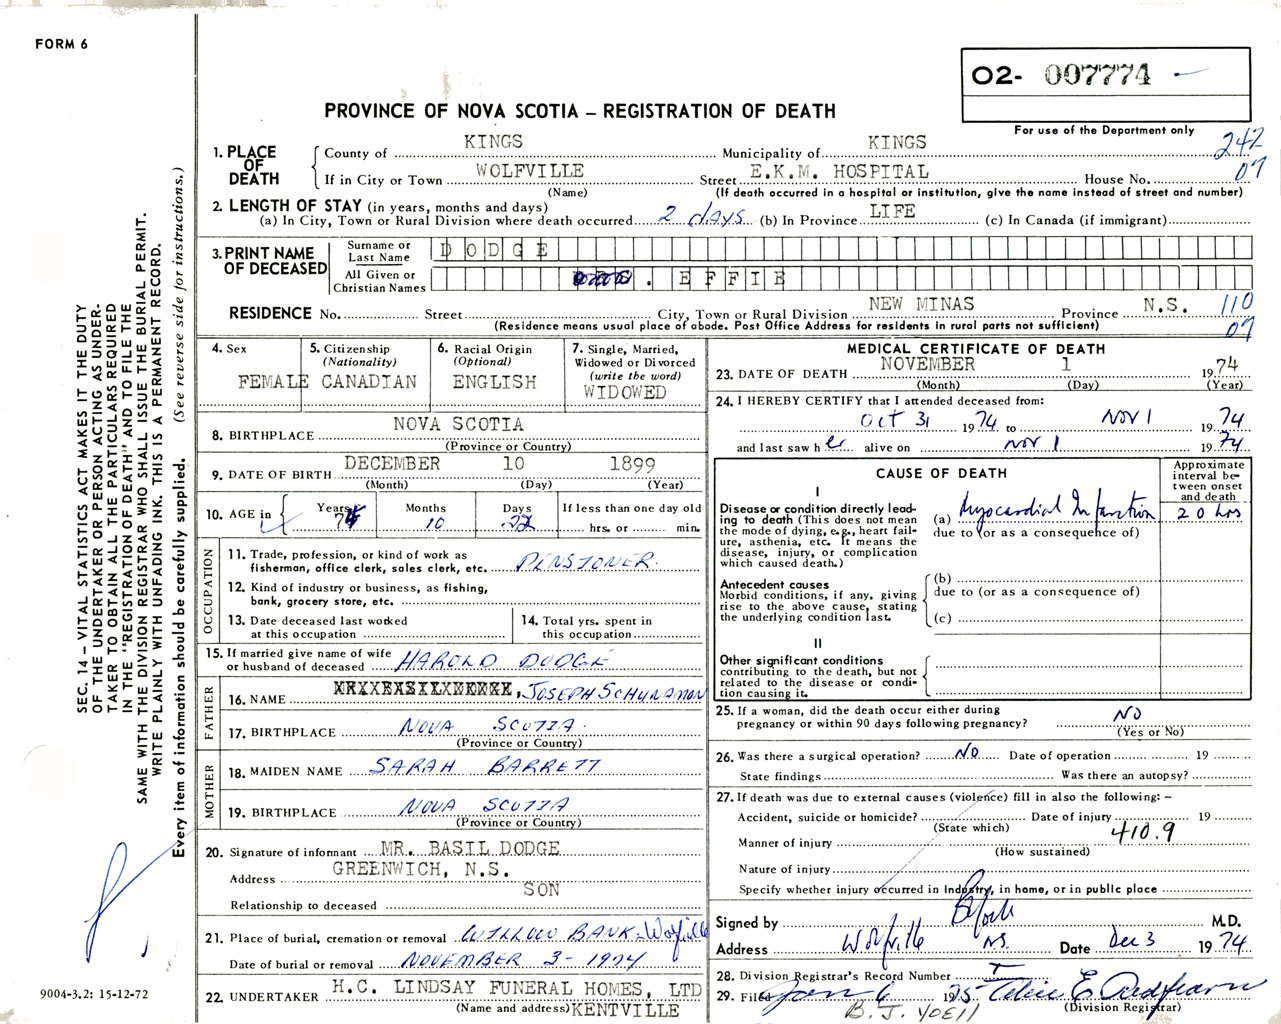 FORM 6
02- 007774 -
PROVINCE OF NOVA SCOTIA – REGISTRATION OF DEATH
For use of the Department only
1. PLACE OF DEATH
County of KINGS Municipality of KINGS 242
If in City or Town WOLFVILLE Street E.K.M. HOSPITAL House No. 07
(Name) (If death occurred in a hospital or institution, give the name instead of street and number)
2. LENGTH OF STAY (in years, months and days)
(a) In City, Town or Rural Division where death occurred 2 days (b) In Province LIFE (c) In Canada (if immigrant)
3. PRINT NAME OF DECEASED
Surname or Last Name DODGE
All Given or Christian Names . EFFIE
RESIDENCE No. Street City, Town or Rural Division NEW MINAS Province N.S. 110
(Residence means usual place of abode. Post Office Address for residents in rural parts not sufficient) 07
4. Sex
FEMALE
5. Citizenship
(Nationality)
CANADIAN
6. Racial Origin
(Optional)
ENGLISH
7. Single, Married,
Widowed or Divorced
(write the word)
WIDOWED
8. BIRTHPLACE NOVA SCOTIA
(Province or Country)
9. DATE OF BIRTH DECEMBER 10 1899
(Month) (Day) (Year)
10. AGE in Years 74 Months 10 Days 22 If less than one day old
hrs. or min.
OCCUPATION
11. Trade, profession, or kind of work as
fisherman, office clerk, sales clerk, etc. PINSIONER.
12. Kind of industry or business, as fishing,
bank, grocery store, etc.
13. Date deceased last worked
at this occupation
14. Total yrs. spent in
this occupation
15. If married give name of wife
or husband of deceased HAROLD DODGE
FATHER
16. NAME , JOSEPH
17. BIRTHPLACE NOVA SCOTIA
(Province or Country)
MOTHER
18. MAIDEN NAME SARAH BARRETT
19. BIRTHPLACE NOVA SCOTIA
(Province or Country)
20. Signature of informant MR. BASIL DODGE
Address GREENWICH, N.S.
Relationship to deceased SON
21. Place of burial, cremation or removal WILLOW BANK - Wolfville
Date of burial or removal NOVEMBER 3 - 1974
22. UNDERTAKER H.C. LINDSAY FUNERAL HOMES, LTD
(Name and address) KENTVILLE
MEDICAL CERTIFICATE OF DEATH
23. DATE OF DEATH NOVEMBER 1 1974
(Month) (Day) (Year)
24. I HEREBY CERTIFY that I attended deceased from:
Oct 31 1974 to Nov 1 1974
and last saw her alive on Nov 1 1974
CAUSE OF DEATH
Approximate interval between onset and death
I
Disease or condition directly leading to death (This does not mean the mode of dying, e.g., heart failure, asthenia, etc. It means the disease, injury, or complication which caused death.)
(a) Myocardial Infarction 20 hrs
due to (or as a consequence of)
Antecedent causes
Morbid conditions, if any, giving rise to the above cause, stating the underlying condition last.
(b)
due to (or as a consequence of)
(c)
II
Other significant conditions contributing to the death, but not related to the disease or condition causing it.
25. If a woman, did the death occur either during
pregnancy or within 90 days following pregnancy? NO
(Yes or No)
26. Was there a surgical operation? NO Date of operation 19
State findings Was there an autopsy?
27. If death was due to external causes (violence) fill in also the following: –
Accident, suicide or homicide? Date of injury 19
(State which)
Manner of injury 410.9
(How sustained)
Nature of injury
Specify whether injury occurred in Industry, in home, or in public place
Signed by M.D.
Address Wolfville NS. Date Dec 3 1974
28. Division Registrar's Record Number
29. Filed Jan 6 1975
(Division Registrar)
B. J. YOELL
SEC. 14 – VITAL STATISTICS ACT MAKES IT THE DUTY
OF THE UNDERTAKER OR PERSON ACTING AS UNDER-
TAKER TO OBTAIN ALL THE PARTICULARS REQUIRED
IN THE "REGISTRATION OF DEATH" AND TO FILE THE
SAME WITH THE DIVISION REGISTRAR WHO SHALL ISSUE THE BURIAL PERMIT.
WRITE PLAINLY WITH UNFADING INK. THIS IS A PERMANENT RECORD.
Every item of information should be carefully supplied. (See reverse side for instructions.)
9004-3.2: 15-12-72